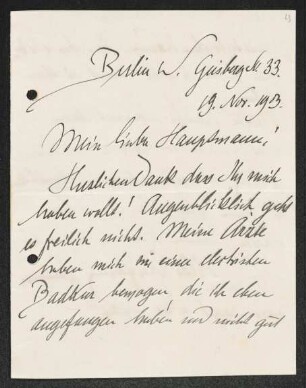 Berlin W. Geisbergstr. 33.
19. Nov. 1913.
Mein lieber Hauptmann!
Herzlichen Dank dass Ihr mich
haben wollt! Augenblicklich geht
es freilich nicht. Meine Ärzte
haben mich in eine
Badkur bezogen die ich eben
angefangen habe und nicht gut